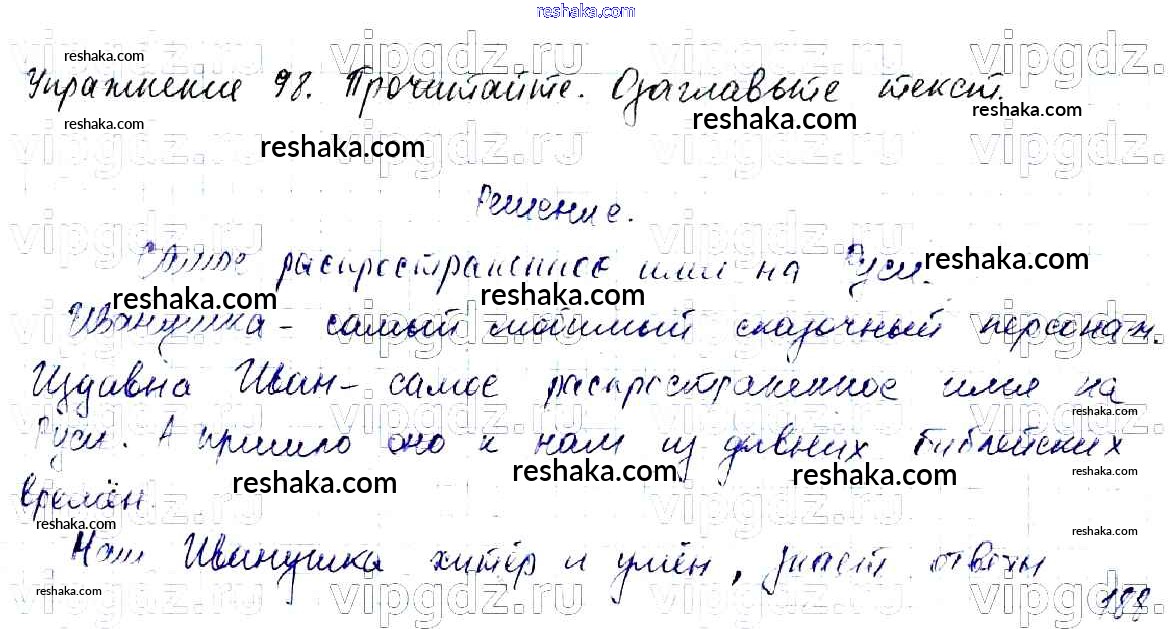 reshaka.com
Упражнение 98. Прочитайте. Озаглавьте текст.
Решение.
Самое распространенное имя на Руси.
Иванушка - самый любимый сказочный персонаж.
Издавна Иван - самое распространенное имя на
Руси. А пришло оно к нам из давних библейских
времён.
Наш Иванушка хитёр и умён, знает ответы
188